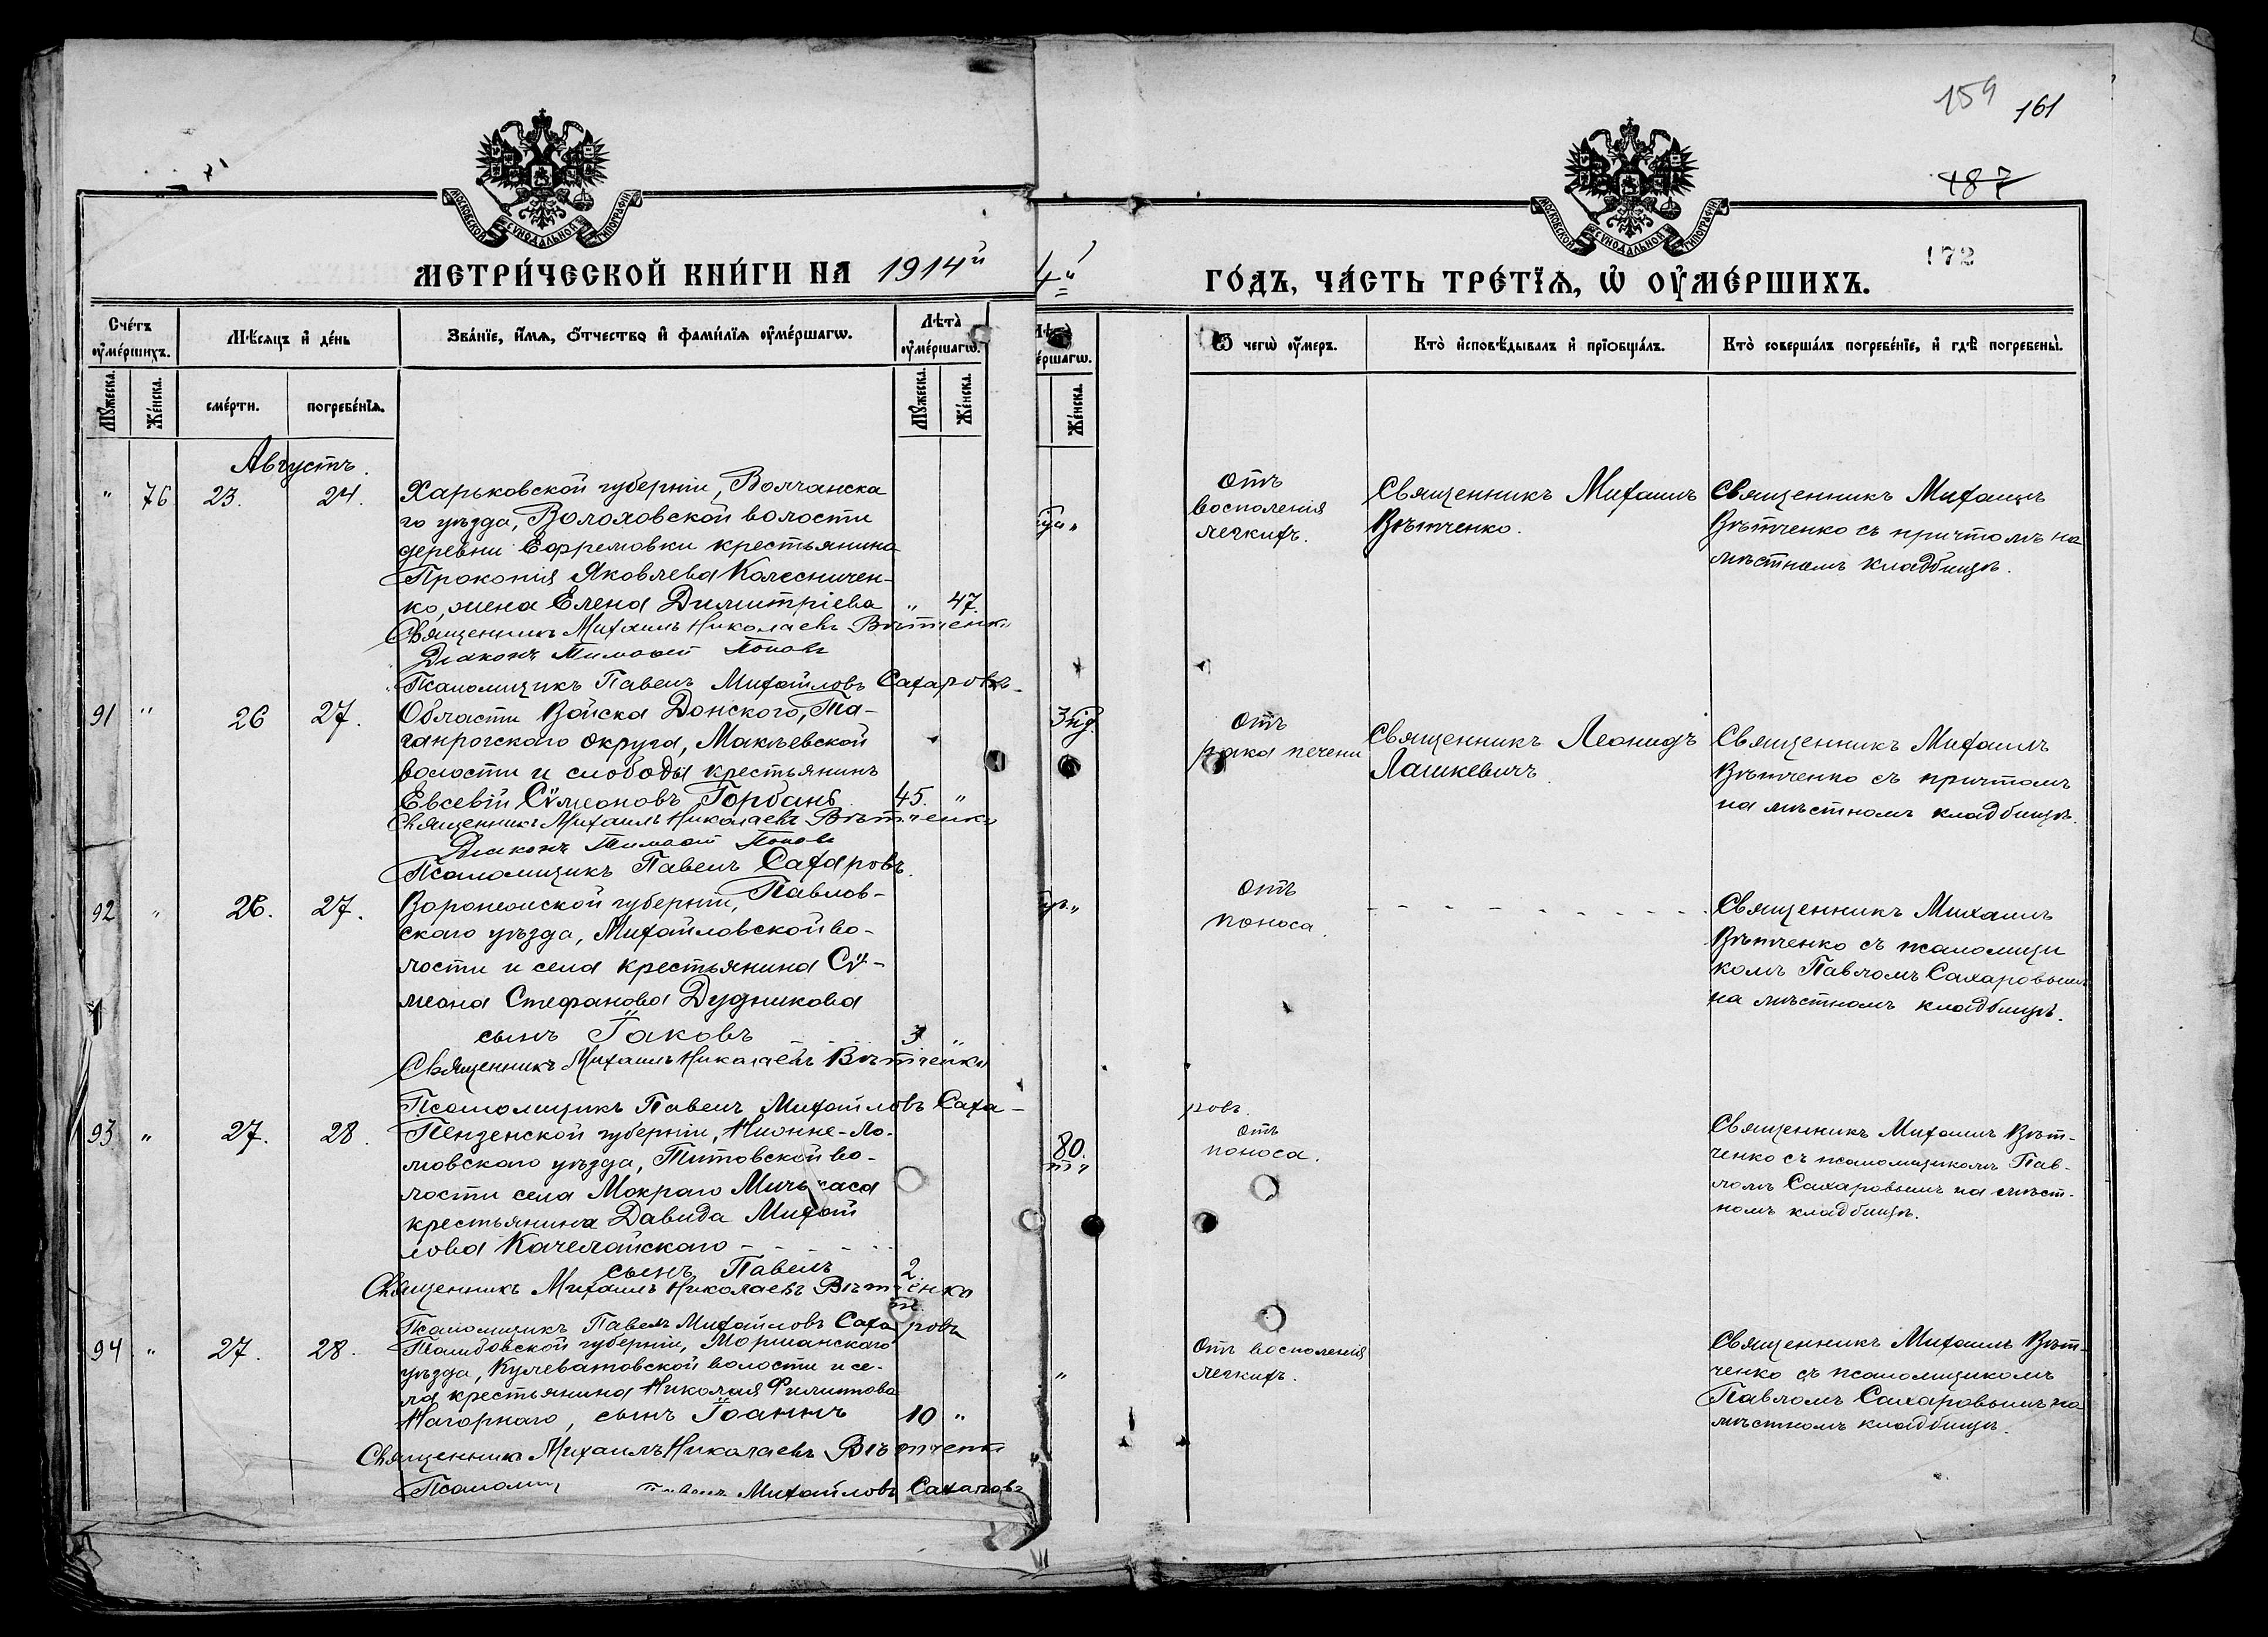 159 161
187
172
МОСКОВСКОЙ СѴНОДАЛЬНОЙ ТИПОГРАФІИ
МОСКОВСКОЙ СѴНОДАЛЬНОЙ ТИПОГРАФІИ
МЕТРИ́ЧЕСКОЙ КНИ́ГИ НА 1914й
ГО́ДЪ, ЧА́СТЬ ТРЕ́ТІѦ, Ѡ҆ ОУ҆МЕ́РШИХЪ.
Сче́тъ оу҆ме́ршихъ.
Мѣ́сяцъ и҆ де́нь
Зва́нїе, и҆́мя, ѻ҆́тчество и҆ фами́лїя оу҆ме́ршагѡ.
Лѣ́та̀ оу҆ме́ршагѡ.
Ѿ чегѡ̀ оу҆́меръ.
Кто̀ и҆сповѣ́дывалъ и҆ прїѡбща́лъ.
Кто̀ соверша́лъ погребе́нїе, и҆ гдѣ̀ погребены̀.
Мꙋ́жеска.
Же́нска.
сме́рти.
погребе́нїя.
Мꙋ́жеска.
Же́нска.
Же́нска.
Августъ.
" 76 23. 24. Харьковской губерніи, Волчанска
го уѣзда, Волоховской волости
деревни Ефремовки крестьянина
Прокопія Яковлева Колесничен-
ко, жена Елена Димитріева " 47.
Священникъ Михаилъ Николаевъ Вѣтченко
Діаконъ Тимоѳей Поповъ
Псаломщикъ Павелъ Михайловъ Сахаровъ
отъ
воспаленія
легкихъ.
Священникъ Михаилъ
Вѣтченко.
Священникъ Михаилъ
Вѣтченко съ причтомъ на
мѣстномъ кладбищѣ.
91 " 26 27. Области Войска Донского, Та-
ганрогскаго округа, Макѣевской
волости и слободы крестьянинъ
Евсевій Сѵмеоновъ Горбань 45. "
Священникъ Михаилъ Николаевъ Вѣтченко
Діаконъ Тимоѳей Поповъ
Псаломщикъ Павелъ Сахаровъ.
отъ
рака печени
Священникъ Леонидъ
Лашкевичъ.
Священникъ Михаилъ
Вѣтченко съ причтомъ
на мѣстномъ кладбищѣ.
92 " 26. 27. Воронежской губерніи, Павлов-
скаго уѣзда, Михайловской во-
лости и села крестьянина Сѵ-
меона Стефанова Дудникова
сынъ Іаковъ 3 "
Священникъ Михаилъ Николаевъ Вѣтченко
Псаломщикъ Павелъ Михайловъ Саха-
ровъ.
отъ
поноса.
Священникъ Михаилъ
Вѣтченко съ псаломщи
комъ Павломъ Сахаровымъ
на мѣстномъ кладбищѣ.
93 " 27. 28. Пензенской губерніи, Нижне-Ло-
мовскаго уѣзда, Титовской во-
лости села Мокраго Мичкаса
крестьянина Давида Михай
лова Качелайскаго
сынъ Павелъ 2
Священникъ Михаилъ Николаевъ Вѣтченко
Псаломщикъ Павелъ Михайловъ Сахаровъ
80.
отъ
поноса.
Священникъ Михаилъ Вѣт-
ченко съ псаломщикомъ Пав-
ломъ Сахаровымъ на мѣст-
номъ кладбищѣ.
94 " 27. 28. Тамбовской губерніи, Моршанскаго
уѣзда, Кулеватовской волости и се-
ла крестьянина Николая Филиппова
Нагорнаго, сынъ Іоаннъ 10 "
Священникъ Михаилъ Николаевъ Вѣтченко
Псаломщ Павелъ Михайловъ Сахаровъ
Отъ воспаленія
легкихъ.
Священникъ Михаилъ Вѣт-
ченко съ псаломщикомъ
Павломъ Сахаровымъ на
мѣстномъ кладбищѣ.